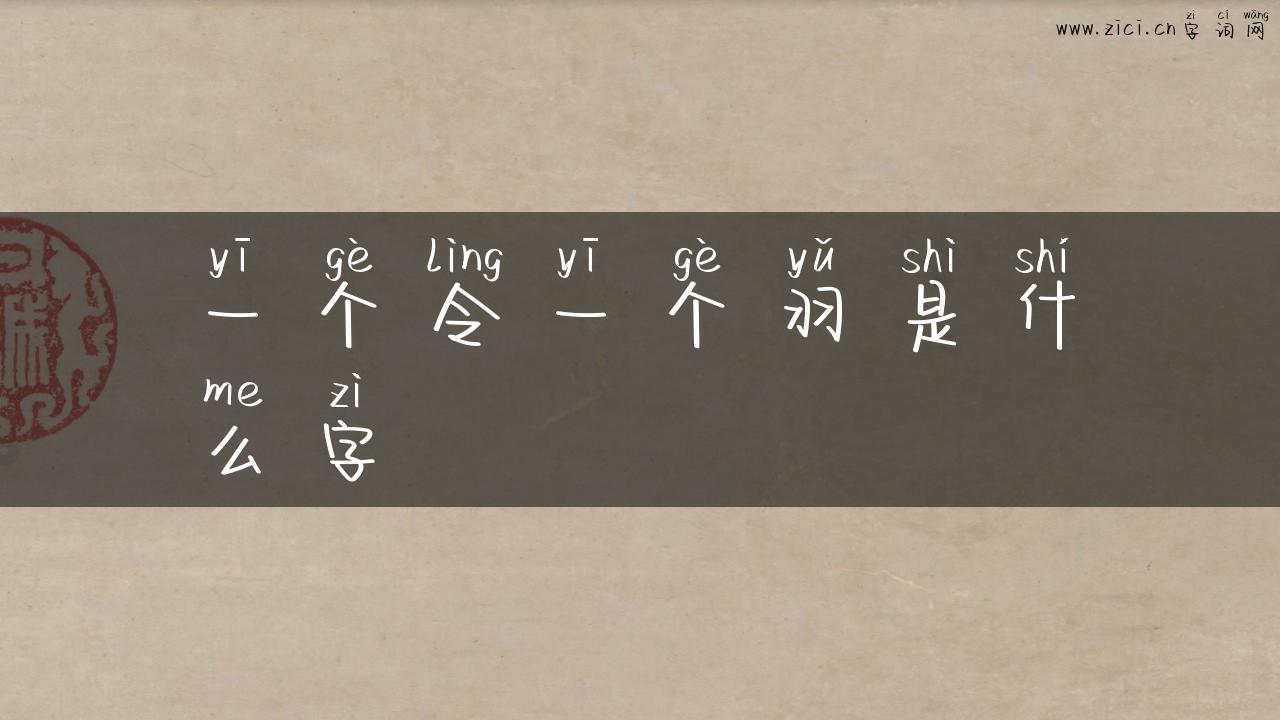 www.zici.cn 字词网
zì cí wǎng
yī gè lìng yī gè yǔ shì shí
一个令一个羽是什
me zì
么字